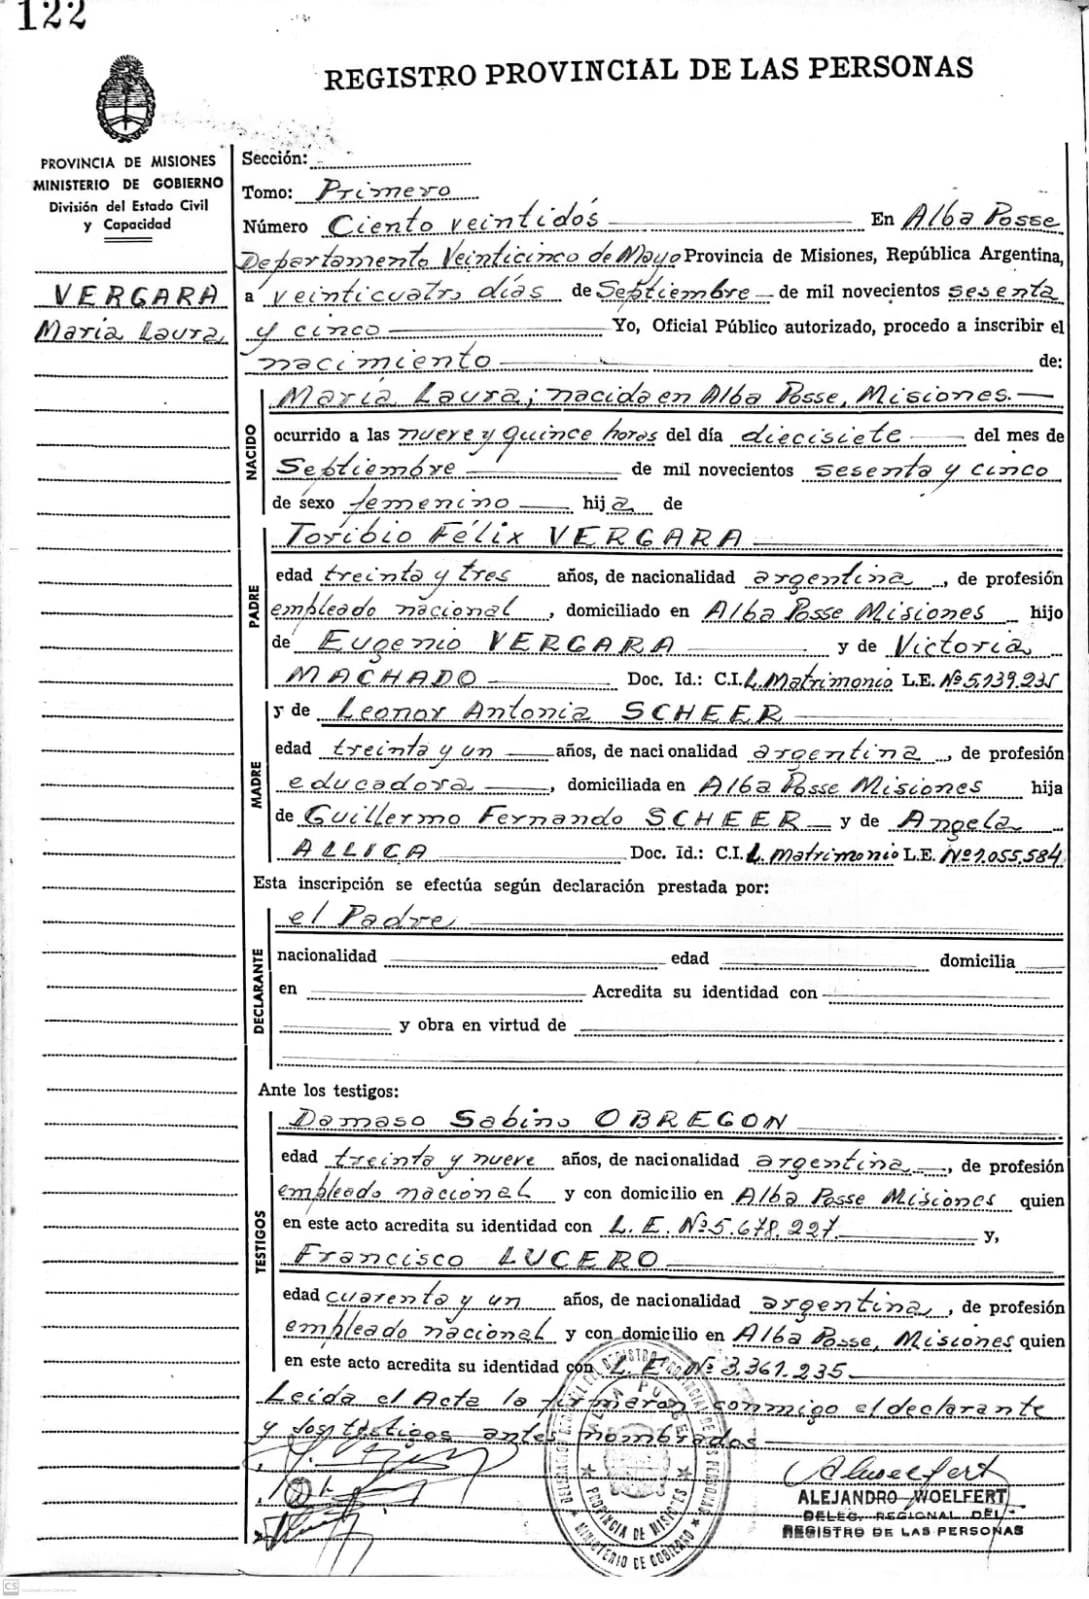 122
REGISTRO PROVINCIAL DE LAS PERSONAS
PROVINCIA DE MISIONES
MINISTERIO DE GOBIERNO
División del Estado Civil
y Capacidad
VERGARA
María Laura
Sección:
Tomo: Primero
Número Ciento veintidós En Alba Posse
Departamento Veinticinco de Mayo Provincia de Misiones, República Argentina,
a veinticuatro días de Septiembre de mil novecientos sesenta
y cinco Yo, Oficial Público autorizado, procedo a inscribir el
nacimiento de:
NACIDO
María Laura; nacida en Alba Posse, Misiones.
ocurrido a las nueve y quince horas del día diecisiete del mes de
Septiembre de mil novecientos sesenta y cinco
de sexo femenino hija de
PADRE
Toribio Félix VERGARA
edad treinta y tres años, de nacionalidad argentina, de profesión
empleado nacional, domiciliado en Alba Posse Misiones hijo
de Eugenio VERGARA y de Victoria
MACHADO Doc. Id.: C.I. L. Matrimonio L.E. Nº 5.139.235
MADRE
y de Leonor Antonia SCHEER
edad treinta y un años, de nacionalidad argentina, de profesión
educadora, domiciliada en Alba Posse Misiones hija
de Guillermo Fernando SCHEER y de Angela
ALLICA Doc. Id.: C.I. L. Matrimonio L.E. Nº 1.055.584
Esta inscripción se efectúa según declaración prestada por:
DECLARANTE
el Padre
nacionalidad edad domicilia
en Acredita su identidad con
y obra en virtud de
Ante los testigos:
TESTIGOS
Damaso Sabino OBREGON
edad treinta y nueve años, de nacionalidad argentina, de profesión
empleado nacional y con domicilio en Alba Posse Misiones quien
en este acto acredita su identidad con L. E. Nº 5.678.227. y,
Francisco LUCERO
edad cuarenta y un años, de nacionalidad argentina, de profesión
empleado nacional y con domicilio en Alba Posse, Misiones quien
en este acto acredita su identidad con L. E. Nº 3.361.235
Leida el Acta la firmaron conmigo el declarante
y los testigos antes nombrados
PROVINCIA DE MISIONES
MINISTERIO DE GOBIERNO
AWoelfert
ALEJANDRO WOELFERT
DELEG. REGIONAL DEL
REGISTRO DE LAS PERSONAS
CS